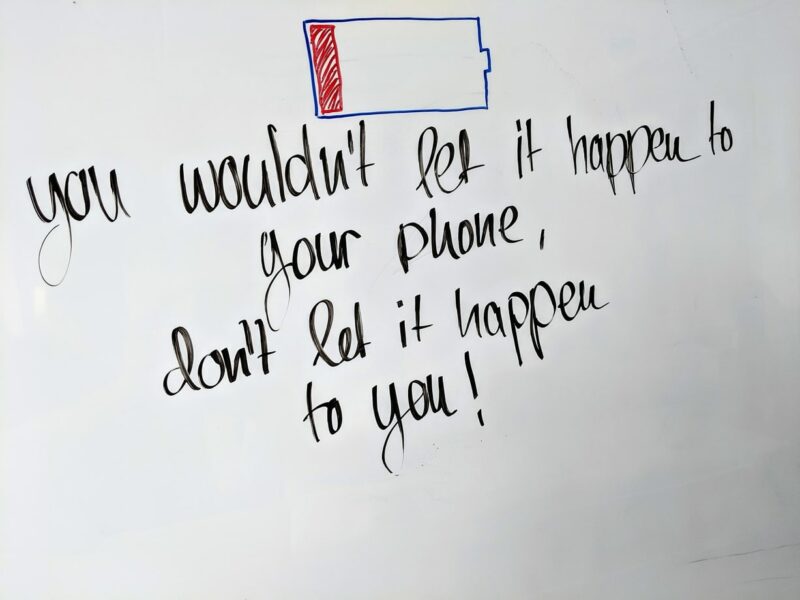 you wouldn't let it happen to
your phone,
don't let it happen
to you!